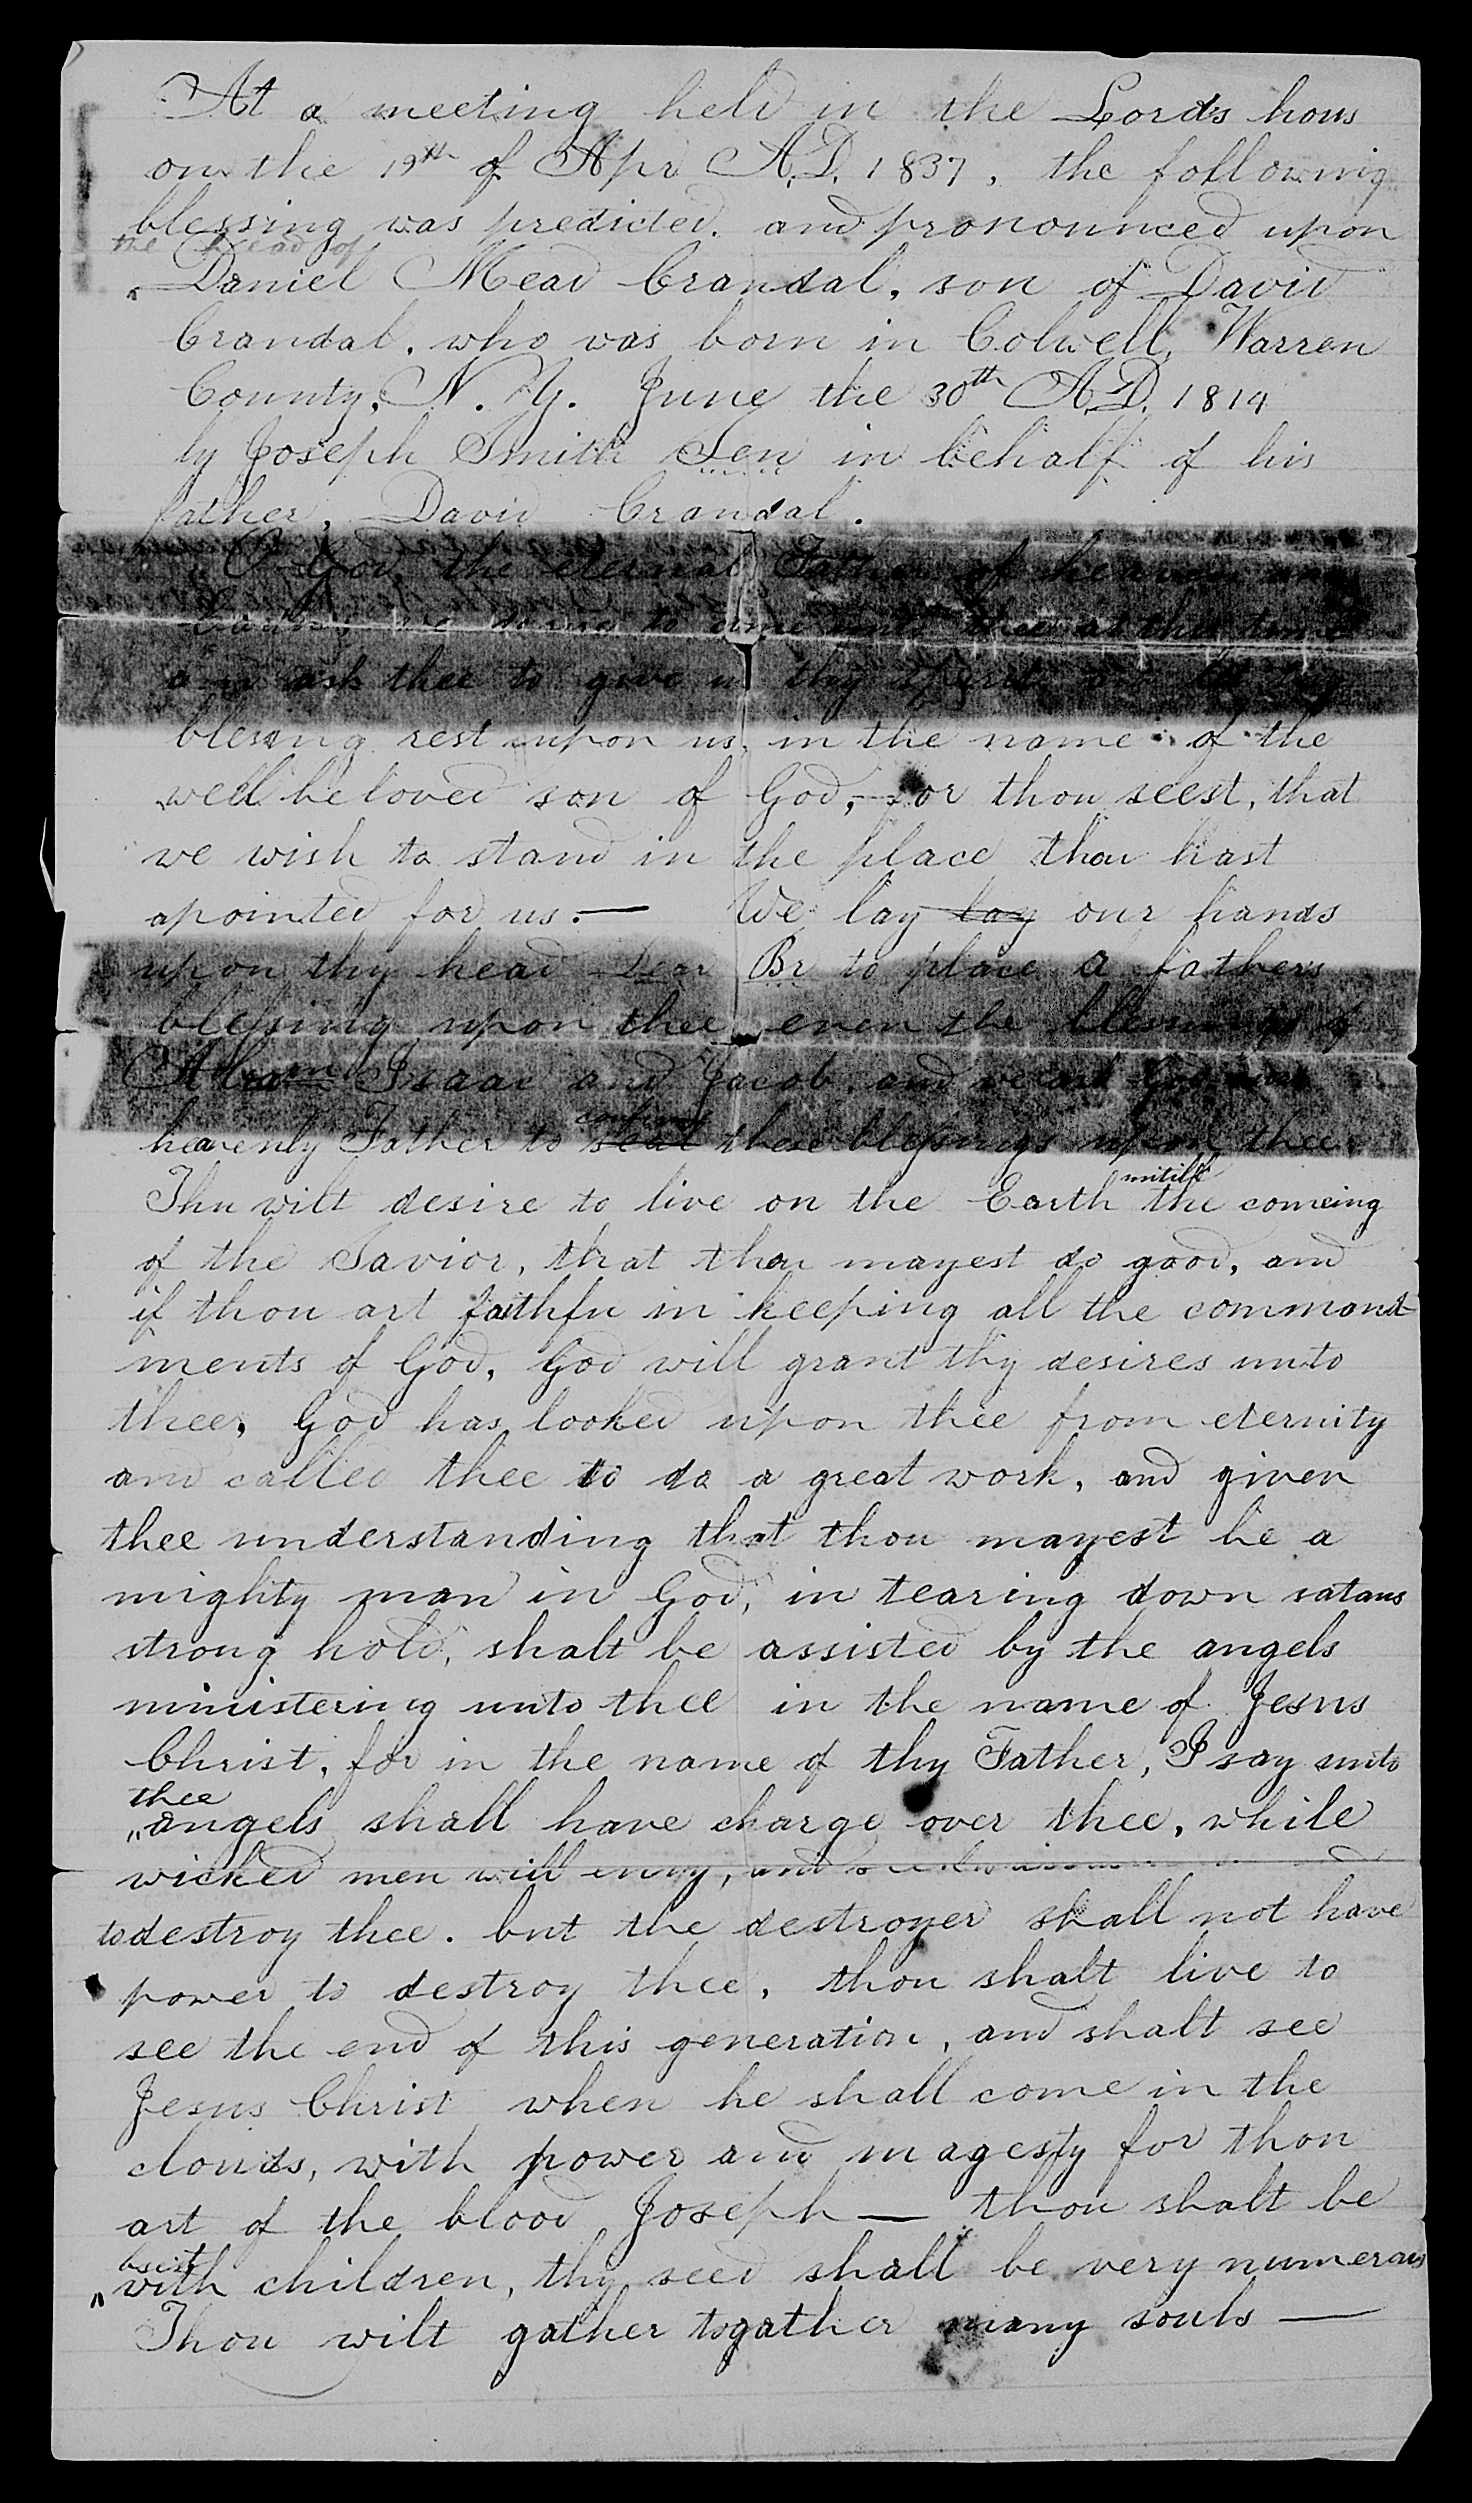 At a meeting held in the Lords hous
on the 19th of Apr A.D. 1837, the following
blessing was predicted. and pronounced upon
the head of
Daniel Mead Crandal, son of David
Crandal, who was born in Colwell, Warren
County, N. Y. June the 30th A.D. 1814
by Joseph Smith Sen in behalf of his
father, David Crandal.
O God, the eternal Father of heaven and
Earth, we desire to come unto thee at this time
and ask thee to give us thy spirit,
blessing rest upon us, in the name of the
well beloved son of God, for thou seest, that
we wish to stand in the place thou hast
apointed for us.— We lay lay our hands
upon thy head Dear Br to place a fathers
blessing upon thee even the blessings of
Abram Isaac and Jacob, and we ask God our
confirm
heavenly Father to seal these blessings upon thee.
untill
Thu wilt desire to live on the Earth the comeing
of the Savior, that thou mayest do good, and
if thou art faithfu in keeping all the command
ments of God, God will grant thy desires unto
thee, God has looked upon thee from eternity
and called thee to do a great work, and given
thee understanding that thou mayest be a
mighty man in God, in tearing down satans
strong hold, shalt be assisted by the angels
ministering unto thee in the name of Jesus
Christ, for in the name of thy Father, I say unto
thee
"angels shall have charge over thee, while
wicked men will envy, and
to destroy thee. but the destroyer shall not have
power to destroy thee, thou shalt live to
see the end of this generation, and shalt see
Jesus Christ when he shall come in the
clouds, with power and magesty for thou
art of the blood Joseph — thou shalt be
with children, thy seed shall be very numerous
Thou wilt gather togather many souls —